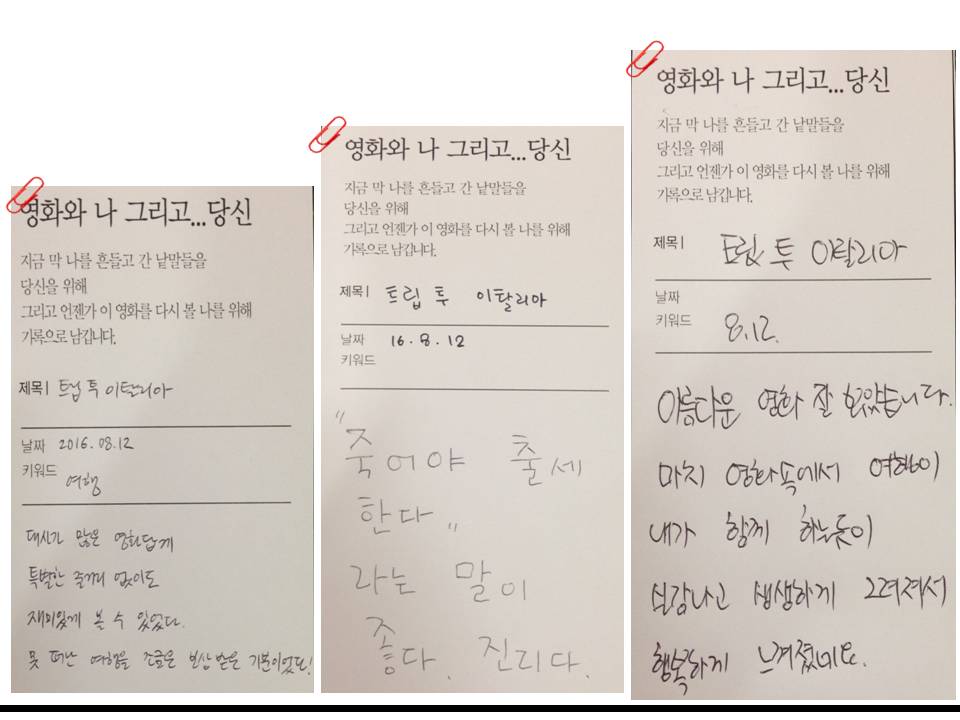 영화와 나 그리고...당신
지금 막 나를 흔들고 간 낱말들을
당신을 위해
그리고 언젠가 이 영화를 다시 볼 나를 위해
기록으로 남깁니다.
제목| 트립 투 이탈리아
날짜 2016.08.12
키워드 여행
대사가 많은 영화답게
특별한 줄거리 없이도
재미있게 볼 수 있었다.
못 떠난 여행을 조금은 보상 받은 기분이었다!
영화와 나 그리고...당신
지금 막 나를 흔들고 간 낱말들을
당신을 위해
그리고 언젠가 이 영화를 다시 볼 나를 위해
기록으로 남깁니다.
제목| 트립 투 이탈리아
날짜 16.8.12
키워드
"죽어야 출세
한다"
라는 말이
좋다. 진리다.
영화와 나 그리고...당신
지금 막 나를 흔들고 간 낱말들을
당신을 위해
그리고 언젠가 이 영화를 다시 볼 나를 위해
기록으로 남깁니다.
제목| 트립 투 이탈리아
날짜
키워드 8.12.
아름다운 영화 잘 보았습니다.
마치 영화속에서 여행이
내가 함께 하는듯이
실감나고 생생하게 그려져서
행복하게 느껴졌네요.